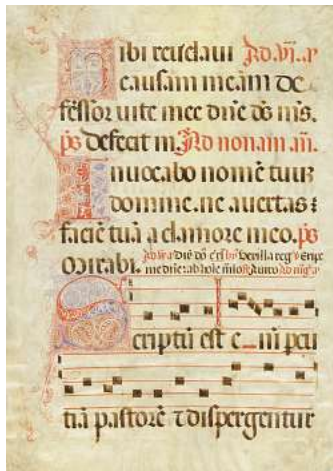 Tibi reuelaui Ad .vi. a
causam meam de
fessor uite mee dñe ds ms.
ps defecit m. Ad nonam añ.
Inuocabo nomē tuuz
domine. ne auertas
faciē tuā a clamore meo. ps
Mirabi.
Scriptū est e_ni pcu
tiā pastorē ⁊ dispergentur